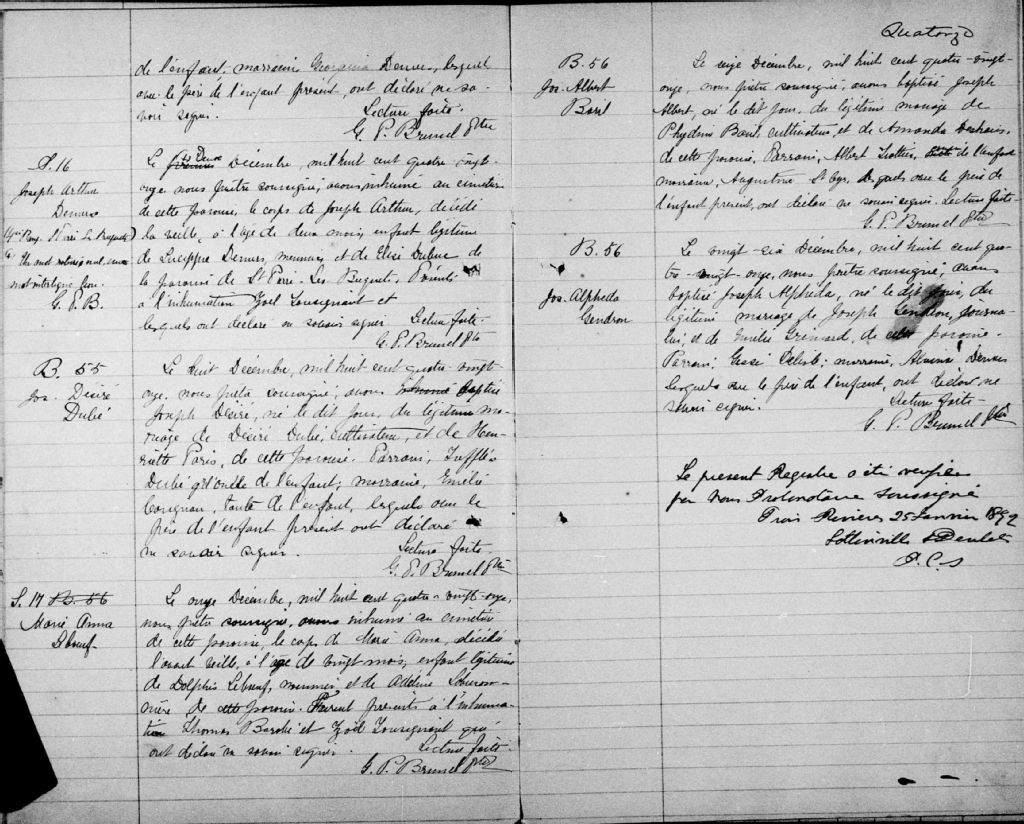 de l'enfant, marraine Georgina Demers, lesquels
avec le père de l'enfant présent, ont déclaré ne sa-
voir signer.
Lecture faite.
G. P. Brunel Ptre
S. 16
Joseph Arthur
Demers
G. P. B.
Le premier Deux Décembre, mil huit cent quatre vingt
onze nous prêtre soussigné, avons inhumé au cimetière
de cette paroisse, le corps de Joseph Arthur, décédé
la veille, à l'âge de deux mois, enfant légitime
de Demers, meunier, et de Elise Dubuc de
la paroisse de St Pierre Les Becquets. Présents
à l'inhumation Zoël Tousignant et
lesquels ont déclaré ne savoir signer Lecture faite.
G. P. Brunel Ptre
B. 55
Jos. Désiré
Dubé
Le huit Décembre, mil huit cent quatre-vingt-
onze, nous prêtre soussigné, avons inhumé baptisé
Joseph Désiré, né le dit jour, du légitime ma-
riage de Désiré Dubé, cultivateur, et de Hen-
riette Paris, de cette paroisse. Parrain,
Dubé de l'enfant; marraine, Emélie
tante de l'enfant, lesquels avec le
père de l'enfant présent ont déclaré
ne savoir signer.
Lecture faite
G. P. Brunel Ptre
S. 17 B. 56
Marie Anna
Leboeuf
Le onze Décembre, mil huit cent quatre-vingt-onze,
nous prêtre soussigné, avons inhumé au cimetière
de cette paroisse, le corps de Marie Anna, décédée
l'avant veille, à l'âge de vingt mois, enfant légitime
de Dolphis Leboeuf, meunier, et de Adeline
de cette paroisse. Furent présents à l'inhuma-
tion Thomas et Zoël Tousignant qui
ont déclaré ne savoir signer. Lecture faite.
G. P. Brunel Ptre
Quatorze
B. 56
Jos. Albert
Baril
Le onze Décembre, mil huit cent quatre-vingt-
onze, nous prêtre soussigné, avons baptisé Joseph
Albert, né le dit jour, du légitime mariage de
Baril, cultivateur, et de Amanda
de cette paroisse, Parrain, Albert Trottier, de l'enfant
marraine, Augustine St Cyr, lesquels avec le père de
l'enfant présent, ont déclaré ne savoir signer. Lecture faite
G. P. Brunel Ptre
B. 56
Jos. Alpheda
Gendron
Le vingt-six Décembre, mil huit cent qua-
tre-vingt-onze, nous prêtre soussigné, avons
baptisé Joseph Alpheda, né le dit jour, du
légitime mariage de Joseph Gendron, journa-
lier, et de Emélie Grimard, de cette paroisse.
Parrain, marraine, Demers
lesquels avec le père de l'enfant, ont déclaré ne
savoir signer. Lecture faite.
G. P. Brunel Ptre
Le present Registre a été verifié
par Nous Protonotaire Soussigné
Trois Rivières 25 Janvier 1892
Lottinville & Desilets
P. C. S